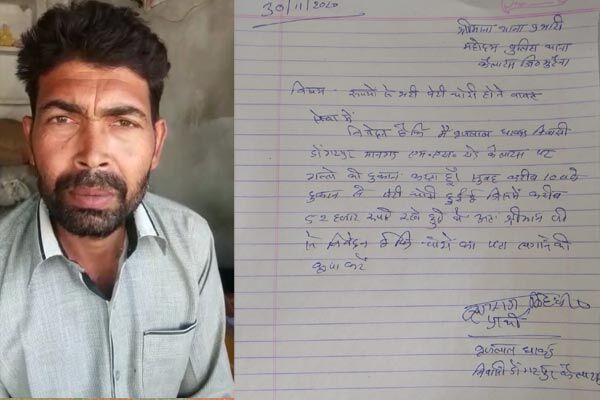 30/11/2020
श्रीमान थाना प्रभारी
महोदय पुलिस थाना
कैलारस जि० मुरैना
विषय - रूपयों से भरी पेटी चोरी होने बावत
सेवा में
निवेदन है कि मैं बृजलाल धाकड निवासी
डोंगरपुर मानगढ एम०एस० रोड कैलारस पर
गल्ले की दुकान करता हूँ। सुबह करीब 10 बजे
दुकान से पेटी चोरी हुई है जिसमें करीब
52 हजार रूपये रखे हुये थे अतः श्रीमान जी
से निवेदन है कि चोरों का पता लगाने की
कृपा करें
प्रार्थी
बृजलाल धाकड
निवासी डोंगरपुर कैलारस